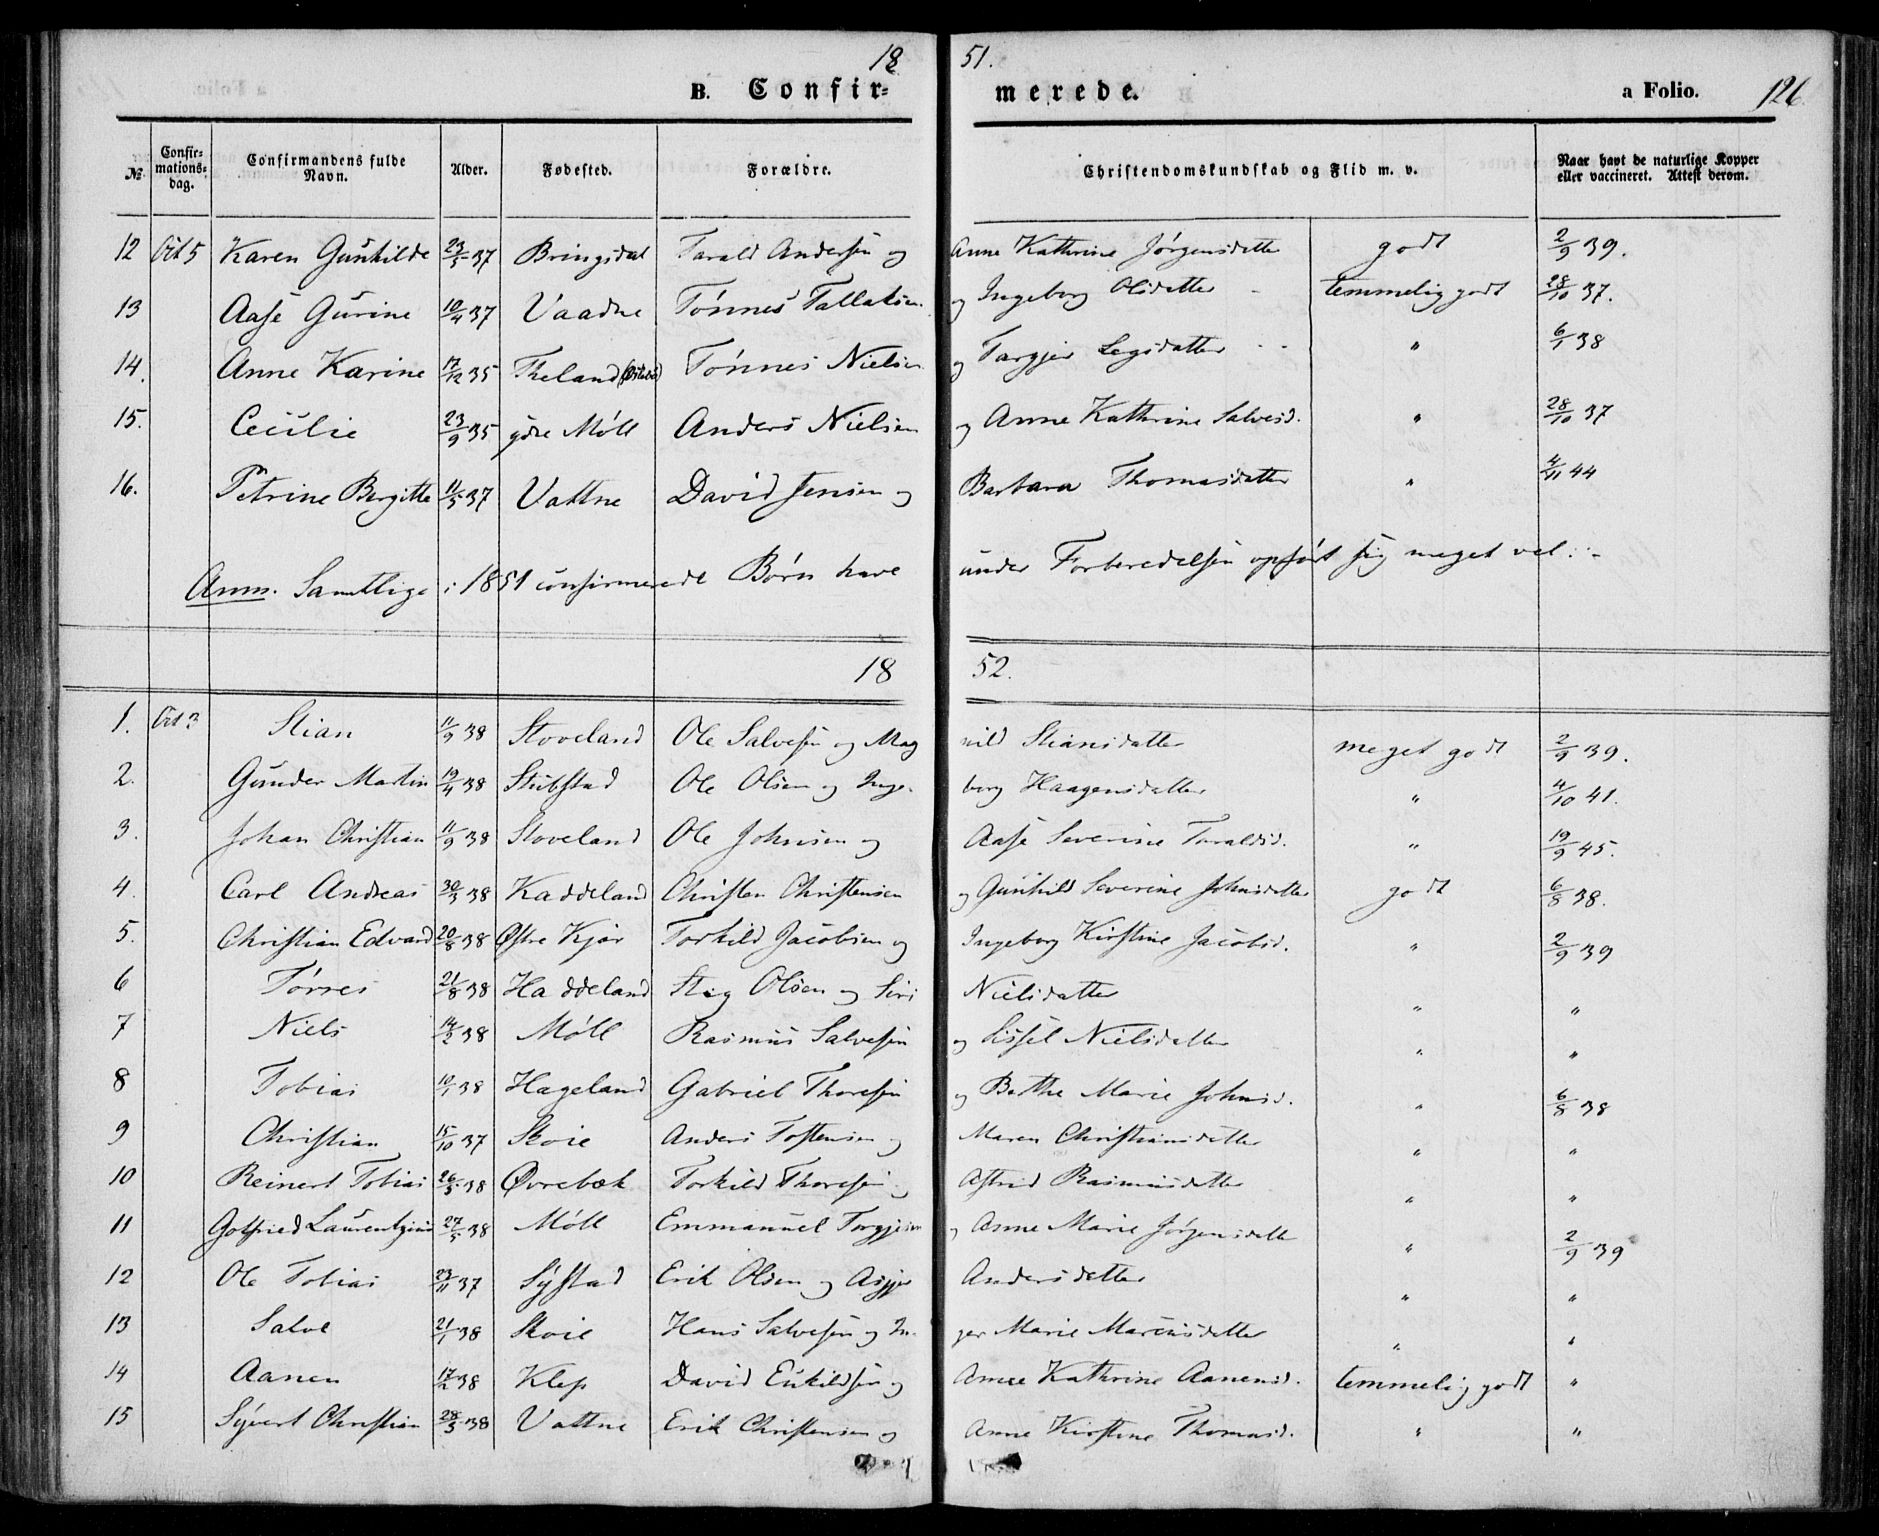 18 51.
B. Confir- merede. a Folio. 126.
No. Confirmationsdag. Confirmandens fulde Navn. Alder. Fødested. Forældre. Christendomskundskab og Flid m. v. Naar havt de naturlige Kopper eller vaccineret. Attest derom.
12 Oct 5 Karen Gunhilde 23/5 37 Bringsdal Tarald Andersen og Anne Kathrine Jørgensdatter godt 2/9 39.
13 Aase Gurine 10/4 37 Vaadne Tønnes Tallaksen og Ingeborg Olsdatter temmelig godt 28/10 37.
14. Anne Karine 17/12 35 Theland Tønnes Nielsen og Targjer " 6/1 38
15. Cecilie 23/9 35 ydre Møll Anders Nielsen og Anne Kathrine Salvesd. " 28/10 37
16. Petrine Bergitte 11/5 37 Vattne David Jensen og Barbara Thomasdatter " 4/11 44
Anm. Samtlige i 1851 confirmerede Børn have under Forberedelsen opført sig meget vel.
18 52.
1. Oct 3 Stian 11/9 38 Stoveland Ole Salvesen og Magnild Stiansdatter meget godt 2/9 39.
2. Gunder Martin 19/4 38 Stubstad Ole Olsen og Ingeborg Haagensdatter " 4/10 41.
3. Johan Christian 11/9 38 Stoveland Ole Johnsen og Aase Severine Taraldsd. " 19/9 45.
4. Carl Andreas 30/3 38 Kaddeland Christen Christensen og Gunhild Severine Johnsdatter godt 6/8 38.
5. Christian Edvard 20/8 38 Østre Kjær Torkild Jacobsen og Ingeborg Kirstine Jacobsd. " 2/9 39
6 Tørres 21/8 38 Haddeland Stig Olsen og Siri Nielsdatter " "
7 Niels 14/2 38 Møll Rasmus Salvesen og Sissel Nielsdatter " "
8 Tobias 10/1 38 Hageland Gabriel Thoresen og Berthe Marie Johnsd. " 6/8 38
9 Christian 15/10 37 Skoie Anders Tostensen og Maren Christiansdatter " "
10 Reinert Tobias 26/5 38 Øvrebøk Torkild Thoresen og Astrid Rasmusdatter " "
11 Gotfried 27/5 38 Møll Emmanuel Torgjesen og Anne Marie Jørgensdatter " 2/9 39
12 Ole Tobias 23/11 37 Systad Erik Olsen og Asgjer Andersdatter " "
13 Salve 21/1 38 Skoie Hans Salvesen og Inger Marie Marcusdatter " "
14 Aanen 17/2 38 Klep David Eukildsen og Anne Kathrine Aanensd. temmelig godt "
15 Syvert Christian 28/3 38 Vattne Erik Christensen og Anne Kirstine Thomasd. " "